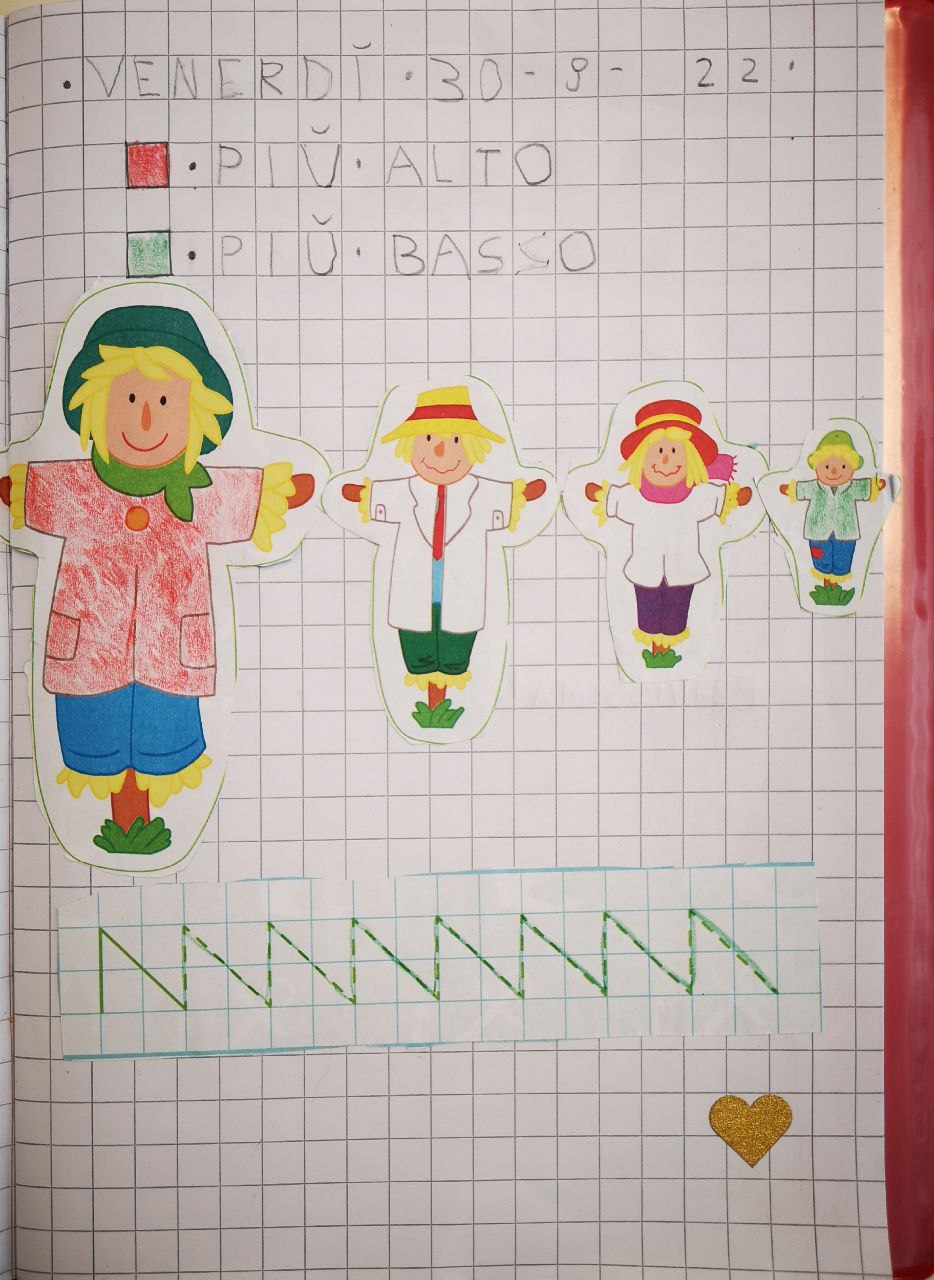 • VENERDÌ • 30 - 9 - 22 •
• PIÙ • ALTO
• PIÙ • BASSO